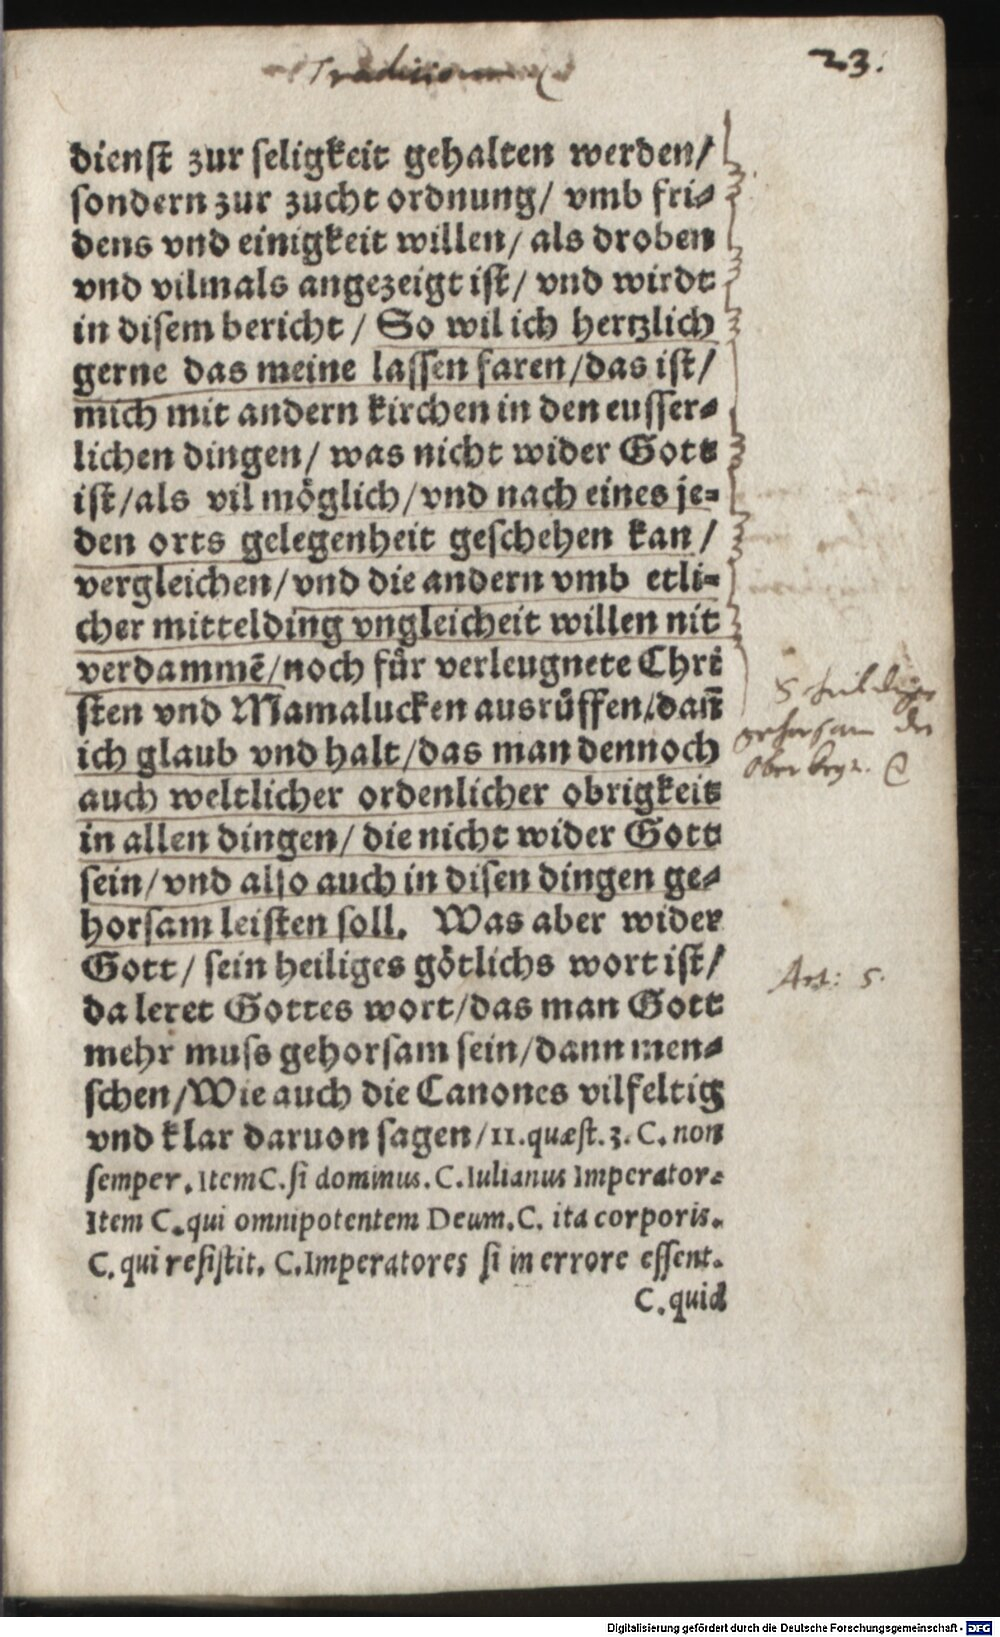 23.
dienst zur seligkeit gehalten werden/
sondern zur zucht ordnung/ vmb fri⸗
dens vnd einigkeit willen/ als droben
vnd vilmals angezeigt ist/ vnd wirdt
in disem bericht / So wil ich hertzlich
gerne das meine lassen faren/das ist/
mich mit andern kirchen in den eusser⸗
lichen dingen/ was nicht wider Gott
ist/als vil möglich/vnd nach eines je⸗
den orts gelegenheit geschehen kan/
vergleichen/vnd die andern vmb etli⸗
cher mittelding vngleicheit willen nit
verdammē/noch für verleugnete Chri
sten vnd Mamalucken ausrüffen/dañ
ich glaub vnd halt/das man dennoch
auch weltlicher ordenlicher obrigkeit
in allen dingen/ die nicht wider Gott
sein/vnd also auch in disen dingen ge⸗
horsam leisten soll. Was aber wider
Gott/ sein heiliges götlichs wort ist/
da leret Gottes wort/das man Gott
mehr muss gehorsam sein/dann men⸗
schen/Wie auch die Canones vilfeltig
vnd klar daruon sagen/11.quæst.3.C.non
semper.Item C.si dominus.C.Iulianus Imperator.
Item C.qui omnipotentem Deum.C. ita corporis.
C. qui resistit. C.Imperatores si in errore essent.
C.quid
gehorsam der
Art: 5.
Digitalisierung gefördert durch die Deutsche Forschungsgemeinschaft - DFG